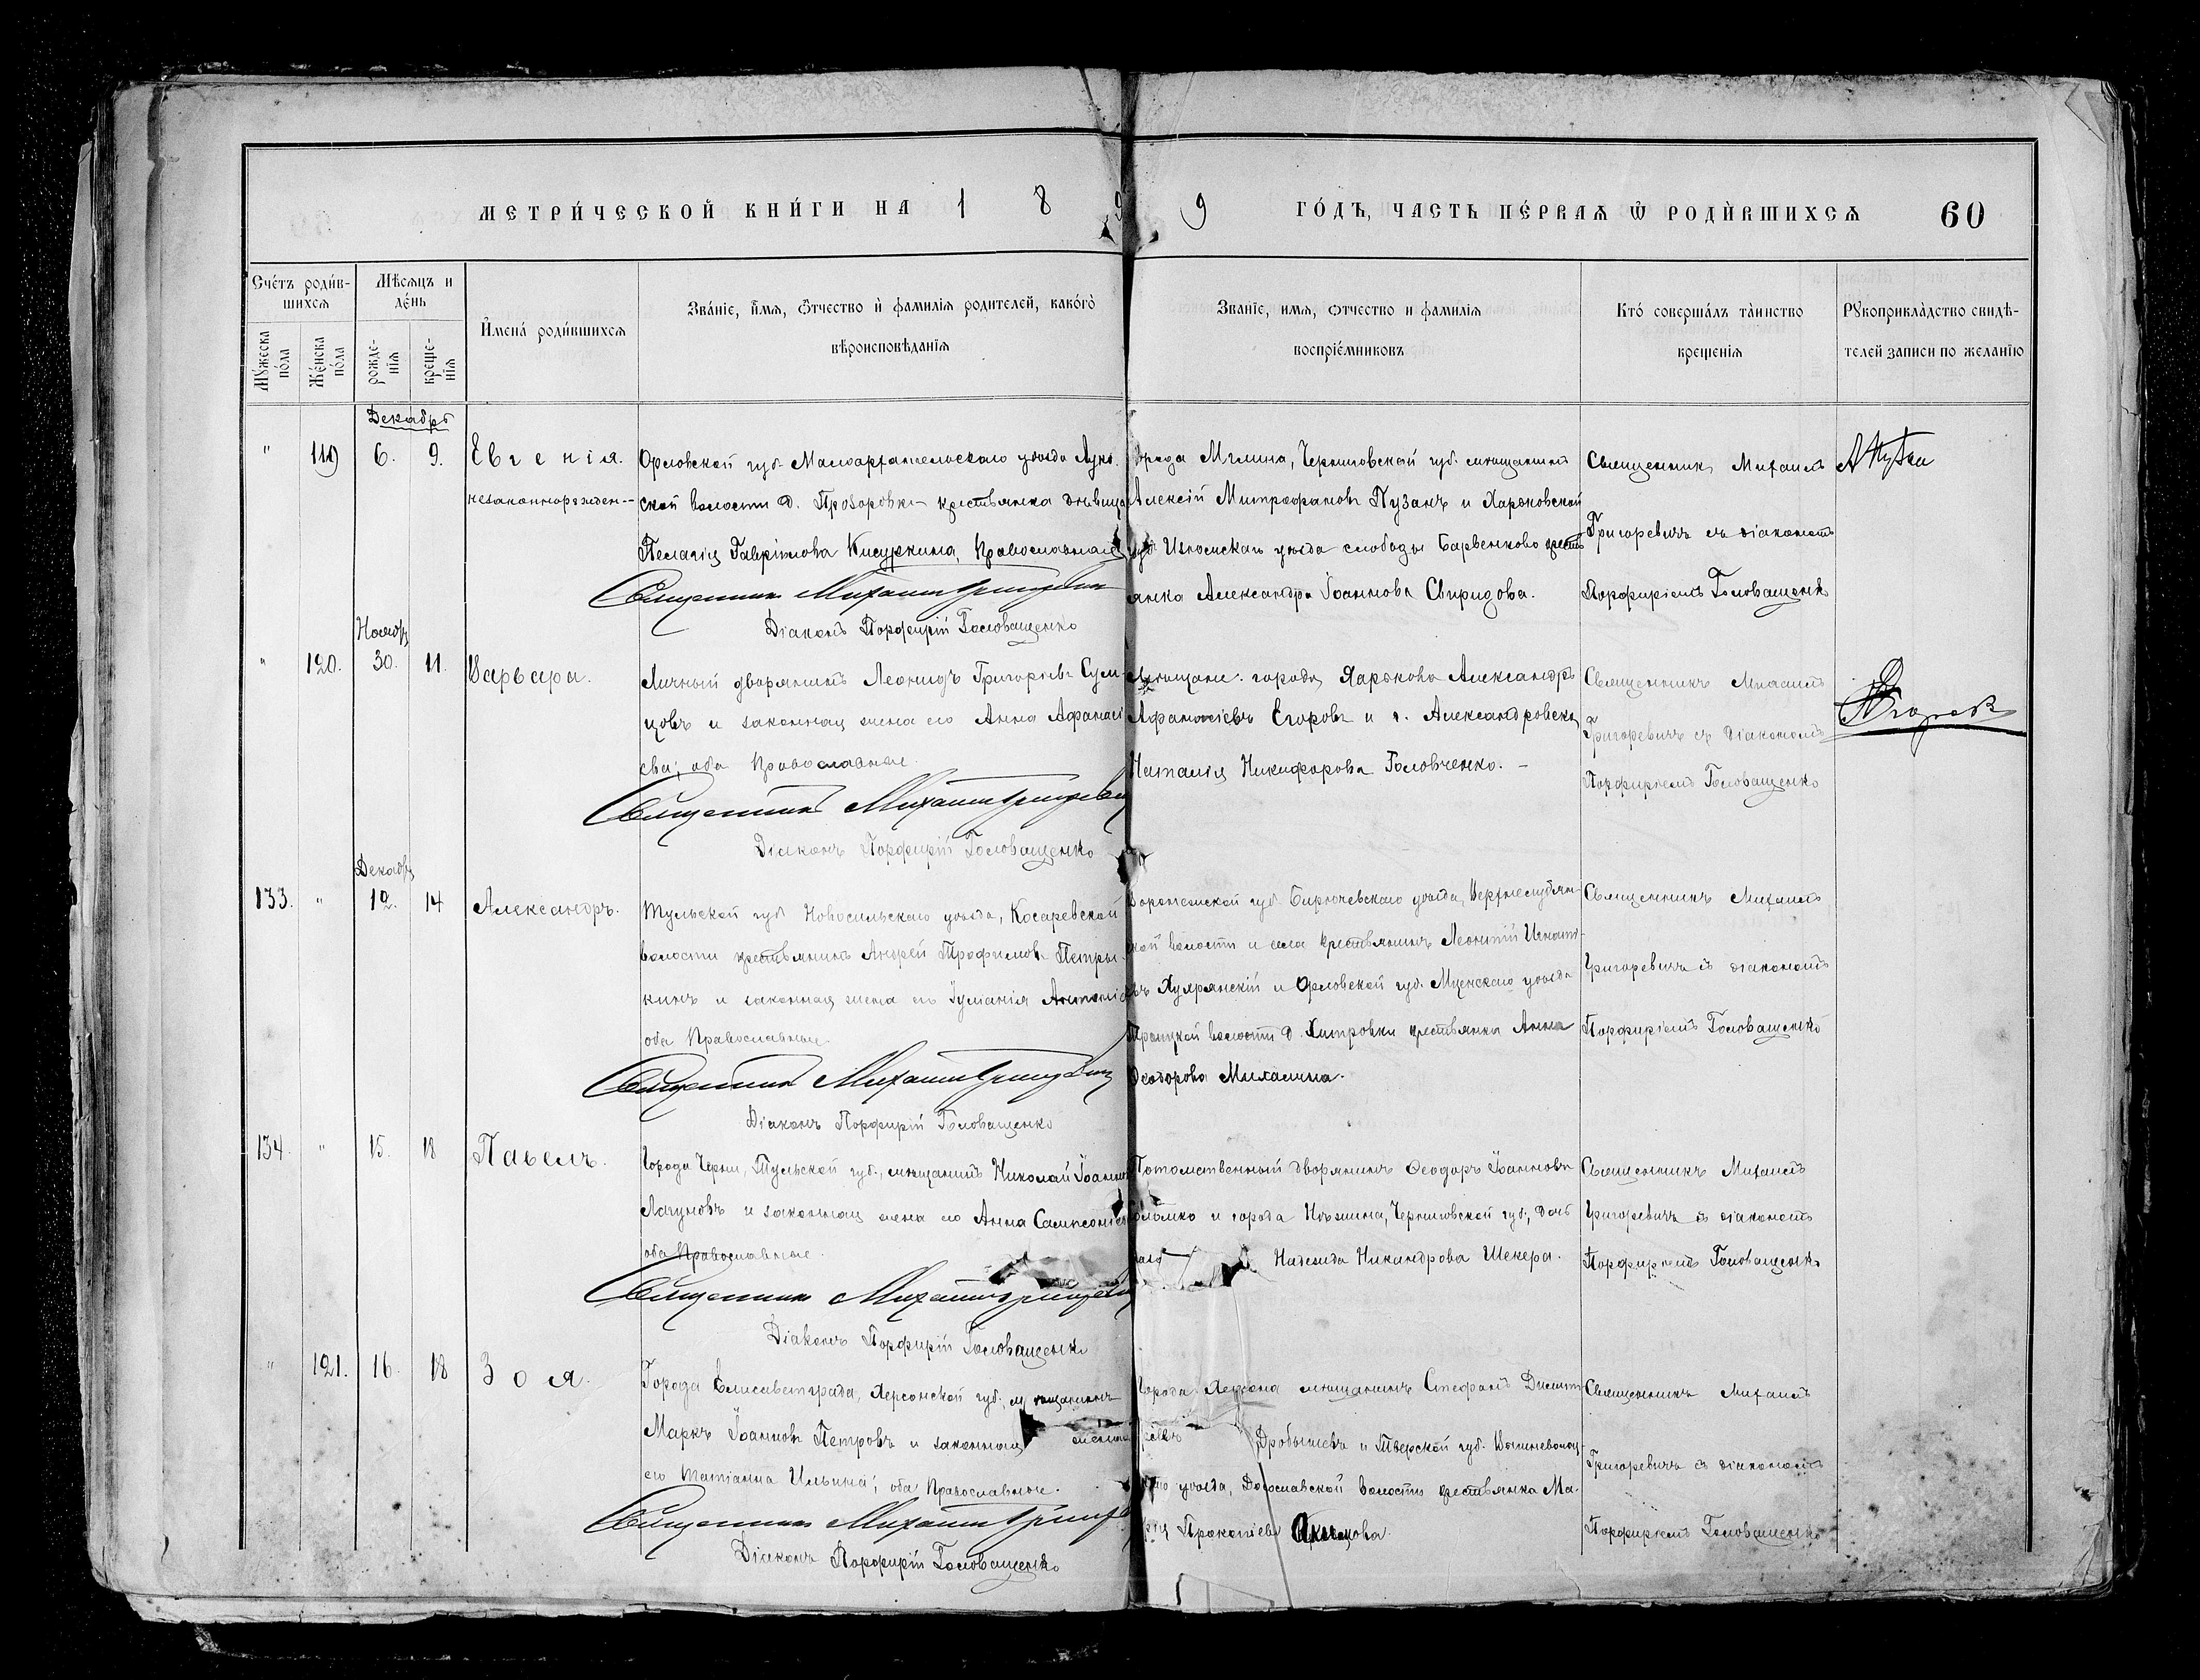 МЕТРИ́ЧЕСКОЙ КНИ́ГИ НА 1899 ГО́ДЪ, ЧАСТЬ ПЕ́РВАЯ Ѿ РОДИ́ВШИХСЯ 60
Сче́тъ роди́в-
шихся
Мѣ́сяцъ и
де́нь
Мꙋ́жеска
по́ла
Же́нска
по́ла
рожде-
нія
креще-
нія
И҆мена́ роди́вшихся
Зва́ніе, и҆́мя, ѻ҆́тчество и҆ фамилія родителей, како́го
вѣроисповѣданія
Званіе, имя, ѻтчество и фамилія
воспріе́мниковъ
Кто́ соверша́лъ та́инство
крещенія
Рꙋкоприкла́дство свидѣ-
телей записи по желанію
Декабрь
" 119 6. 9. Евгенія.
незаконнорожден--
Орловской губ. Малоархангельскаго уѣзда Луко-
ской волости д. Прозоровки крестьянка дѣвица
Пелагія Гавріилова Кисуркина, Православная
Священникъ Михаилъ Григоревичъ
Діаконъ Порфирій Головащенко
города Мглина, Черниговской губ. мѣщанинъ
Алексій Митрофановъ Пузанъ и Харьковской
губ. Изюмскаго уѣзда слободы Барвенково кресть
янка Александра Іоаннова Свиридова.
Священникъ Михаилъ
Григоревичъ съ діакономъ
Порфиріемъ Головащенко
Ноябрь
" 120. 30. 11. Варвара.
Личный дворянинъ Леонидъ Григорьевъ Сум-
цовъ и законная жена его Анна Афанасі
ева; оба Православные.
Священникъ Михаилъ Григоревичъ
Діаконъ Порфирій Головащенко
Мѣщане: города Харькова Александръ
Афанасіевъ Егоровъ и г. Александровска
Наталія Никифорова Головченко. –
Священникъ Михаилъ
Григоревичъ съ діакономъ
Порфиріемъ Головащенко
Егоровъ
Декабрь
133. " 12. 14 Александръ.
Тульской губ. Новосильскаго уѣзда, Косаревской
волости крестьянинъ Андрей Трофимовъ Петры-
кинъ и законная жена его Іуліанія Антоніе
оба Православные.
Священникъ Михаилъ Григоревичъ
Діаконъ Порфирій Головащенко
Воронежской губ. Бирюченскаго уѣзда,
ской волости и села крестьянинъ Леонтій Игнатi-
евъ и Орловской губ. Мценскаго уѣзда
Троицкой волости д. Хитровки крестьянка Анна
Ѳеодорова Михалина.
Священникъ Михаилъ
Григоревичъ съ діакономъ
Порфиріемъ Головащенко
134. " 15. 18 Павелъ.
Города Черни, Тульской губ., мѣщанинъ Николай Іоанн
Лагуновъ и законная жена его Анна Сампсоніе
оба Православные.
Священникъ Михаилъ Григоревичъ
Діаконъ Порфирій Головащенко
Потомственный дворянинъ Ѳеодоръ Іоанновъ
и города Нѣжина, Черниговской губ., дочь
Надежда Никандрова Шекера.
Священникъ Михаилъ
Григоревичъ съ діакономъ
Порфиріемъ Головащенко
" 121. 16. 18 Зоя.
Города Елисаветграда, Херсонской губ., мѣщанинъ
Маркъ Іоанновъ Петровъ и законная жена
его Татіанна Ильина; оба Православные.
Священникъ Михаилъ Григоре
Діаконъ Порфирій Головащенко
города Херсона мѣщанинъ Стефанъ Димит-
ріевъ Дробышевъ и Тверской губ. Вышневолоц-
каго уѣзда, Дорославской волости крестьянка Ма-
рія Прокопіева
Священникъ Михаилъ
Григоревичъ съ діакономъ
Порфиріемъ Головащенко